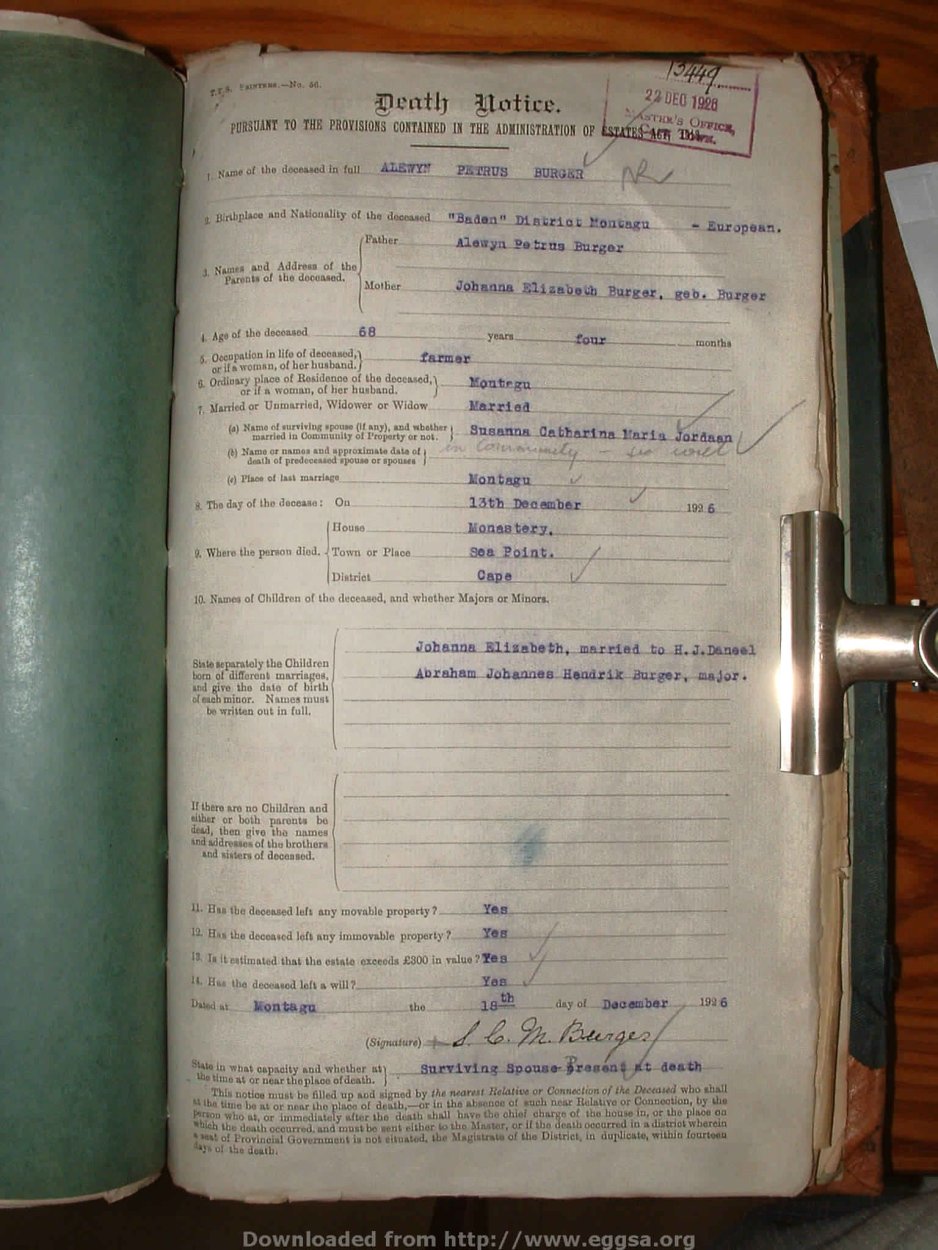 T.P.S. PRINTERS.—No. 56.
13449
22 DEC 1926
MASTER'S OFFICE,
CAPE TOWN.
Death Notice.
PURSUANT TO THE PROVISIONS CONTAINED IN THE ADMINISTRATION OF ESTATES ACT, 1913.
1. Name of the deceased in full ALEWYN PETRUS BURGER
2. Birthplace and Nationality of the deceased "Baden" District Montagu - European.
3. Names and Address of the Parents of the deceased.
Father Alewyn Petrus Burger
Mother Johanna Elizabeth Burger, geb. Burger
4. Age of the deceased 68 years four months
5. Occupation in life of deceased, or if a woman, of her husband. farmer
6. Ordinary place of Residence of the deceased, or if a woman, of her husband. Montagu
7. Married or Unmarried, Widower or Widow Married
(a) Name of surviving spouse (if any), and whether married in Community of Property or not. Susanna Catharina Maria Jordaan
in Community -
(b) Name or names and approximate date of death of predeceased spouse or spouses
(c) Place of last marriage Montagu
8. The day of the decease: On 13th December 1926
9. Where the person died.
House Monastery,
Town or Place Sea Point.
District Cape
10. Names of Children of the deceased, and whether Majors or Minors.
State separately the Children
born of different marriages,
and give the date of birth
of each minor. Names must
be written out in full.
Johanna Elizabeth, married to H.J.Daneel
Abraham Johannes Hendrik Burger, major.
If there are no Children and
either or both parents be
dead, then give the names
and addresses of the brothers
and sisters of deceased.
11. Has the deceased left any movable property? Yes
12. Has the deceased left any immovable property? Yes
13. Is it estimated that the estate exceeds £300 in value? Yes
14. Has the deceased left a will? Yes
Dated at Montagu the 18th day of December 1926
(Signature) S. C. M. Burger
State in what capacity and whether at the time at or near the place of death. Surviving Spouse Present at death
This notice must be filled up and signed by the nearest Relative or Connection of the Deceased who shall
at the time be at or near the place of death,—or in the absence of such near Relative or Connection, by the
person who at, or immediately after the death shall have the chief charge of the house in, or the place on
which the death occurred, and must be sent either to the Master, or if the death occurred in a district wherein
a seat of Provincial Government is not situated, the Magistrate of the District, in duplicate, within fourteen
days of the death.
Downloaded from http://www.eggsa.org